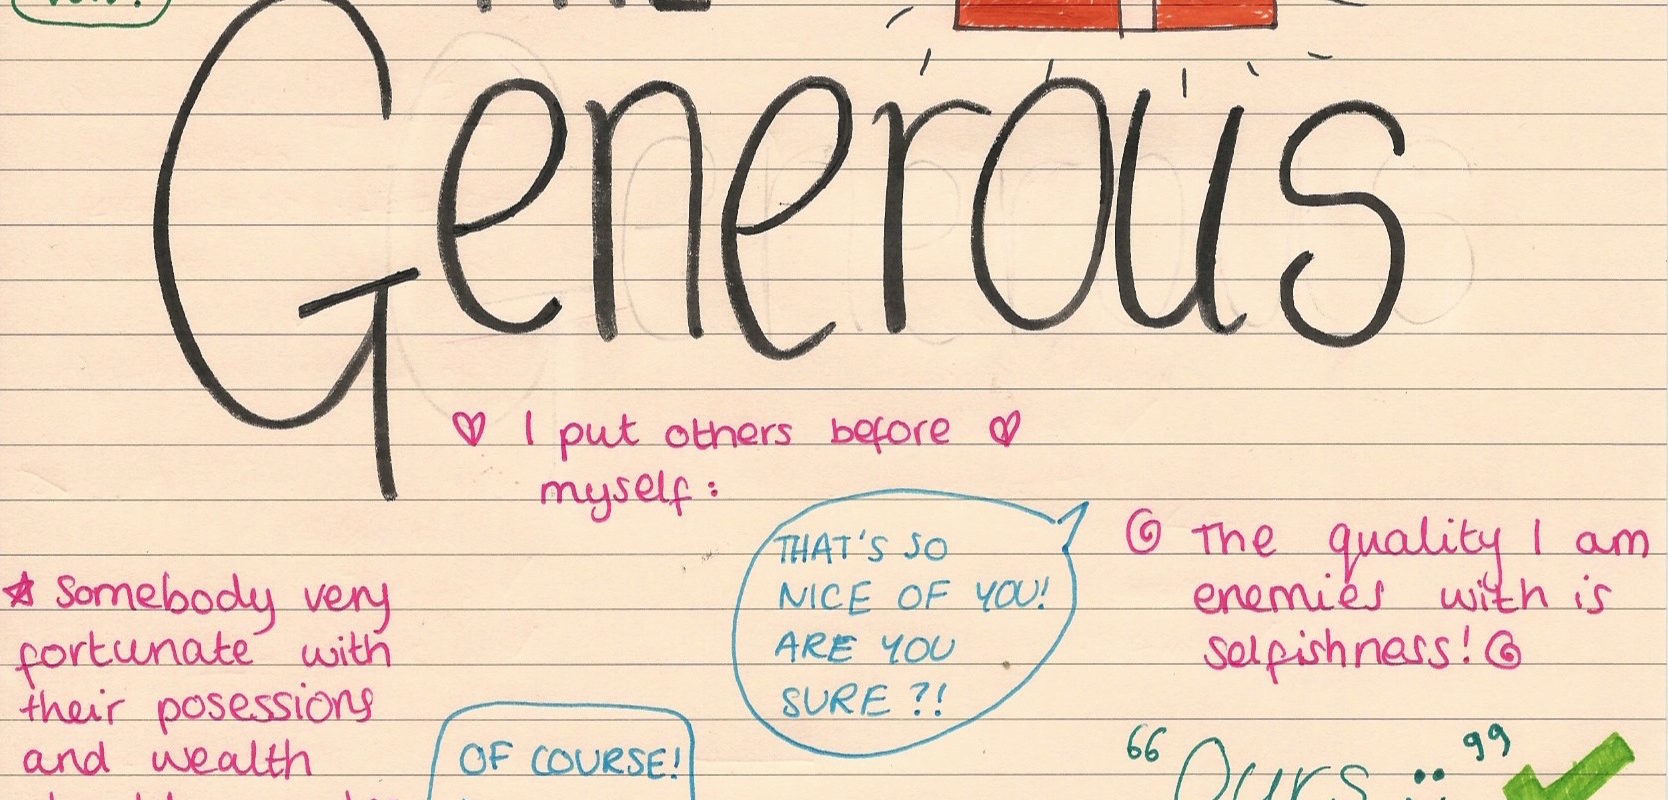 Generous
♡ I put others before ♡
myself:
THAT'S SO
NICE OF YOU!
ARE YOU
SURE?!
The quality I am
enemies with is
selfishness!
☆ Somebody very
fortunate with
their posessions
and wealth
OF COURSE!
"Ours"